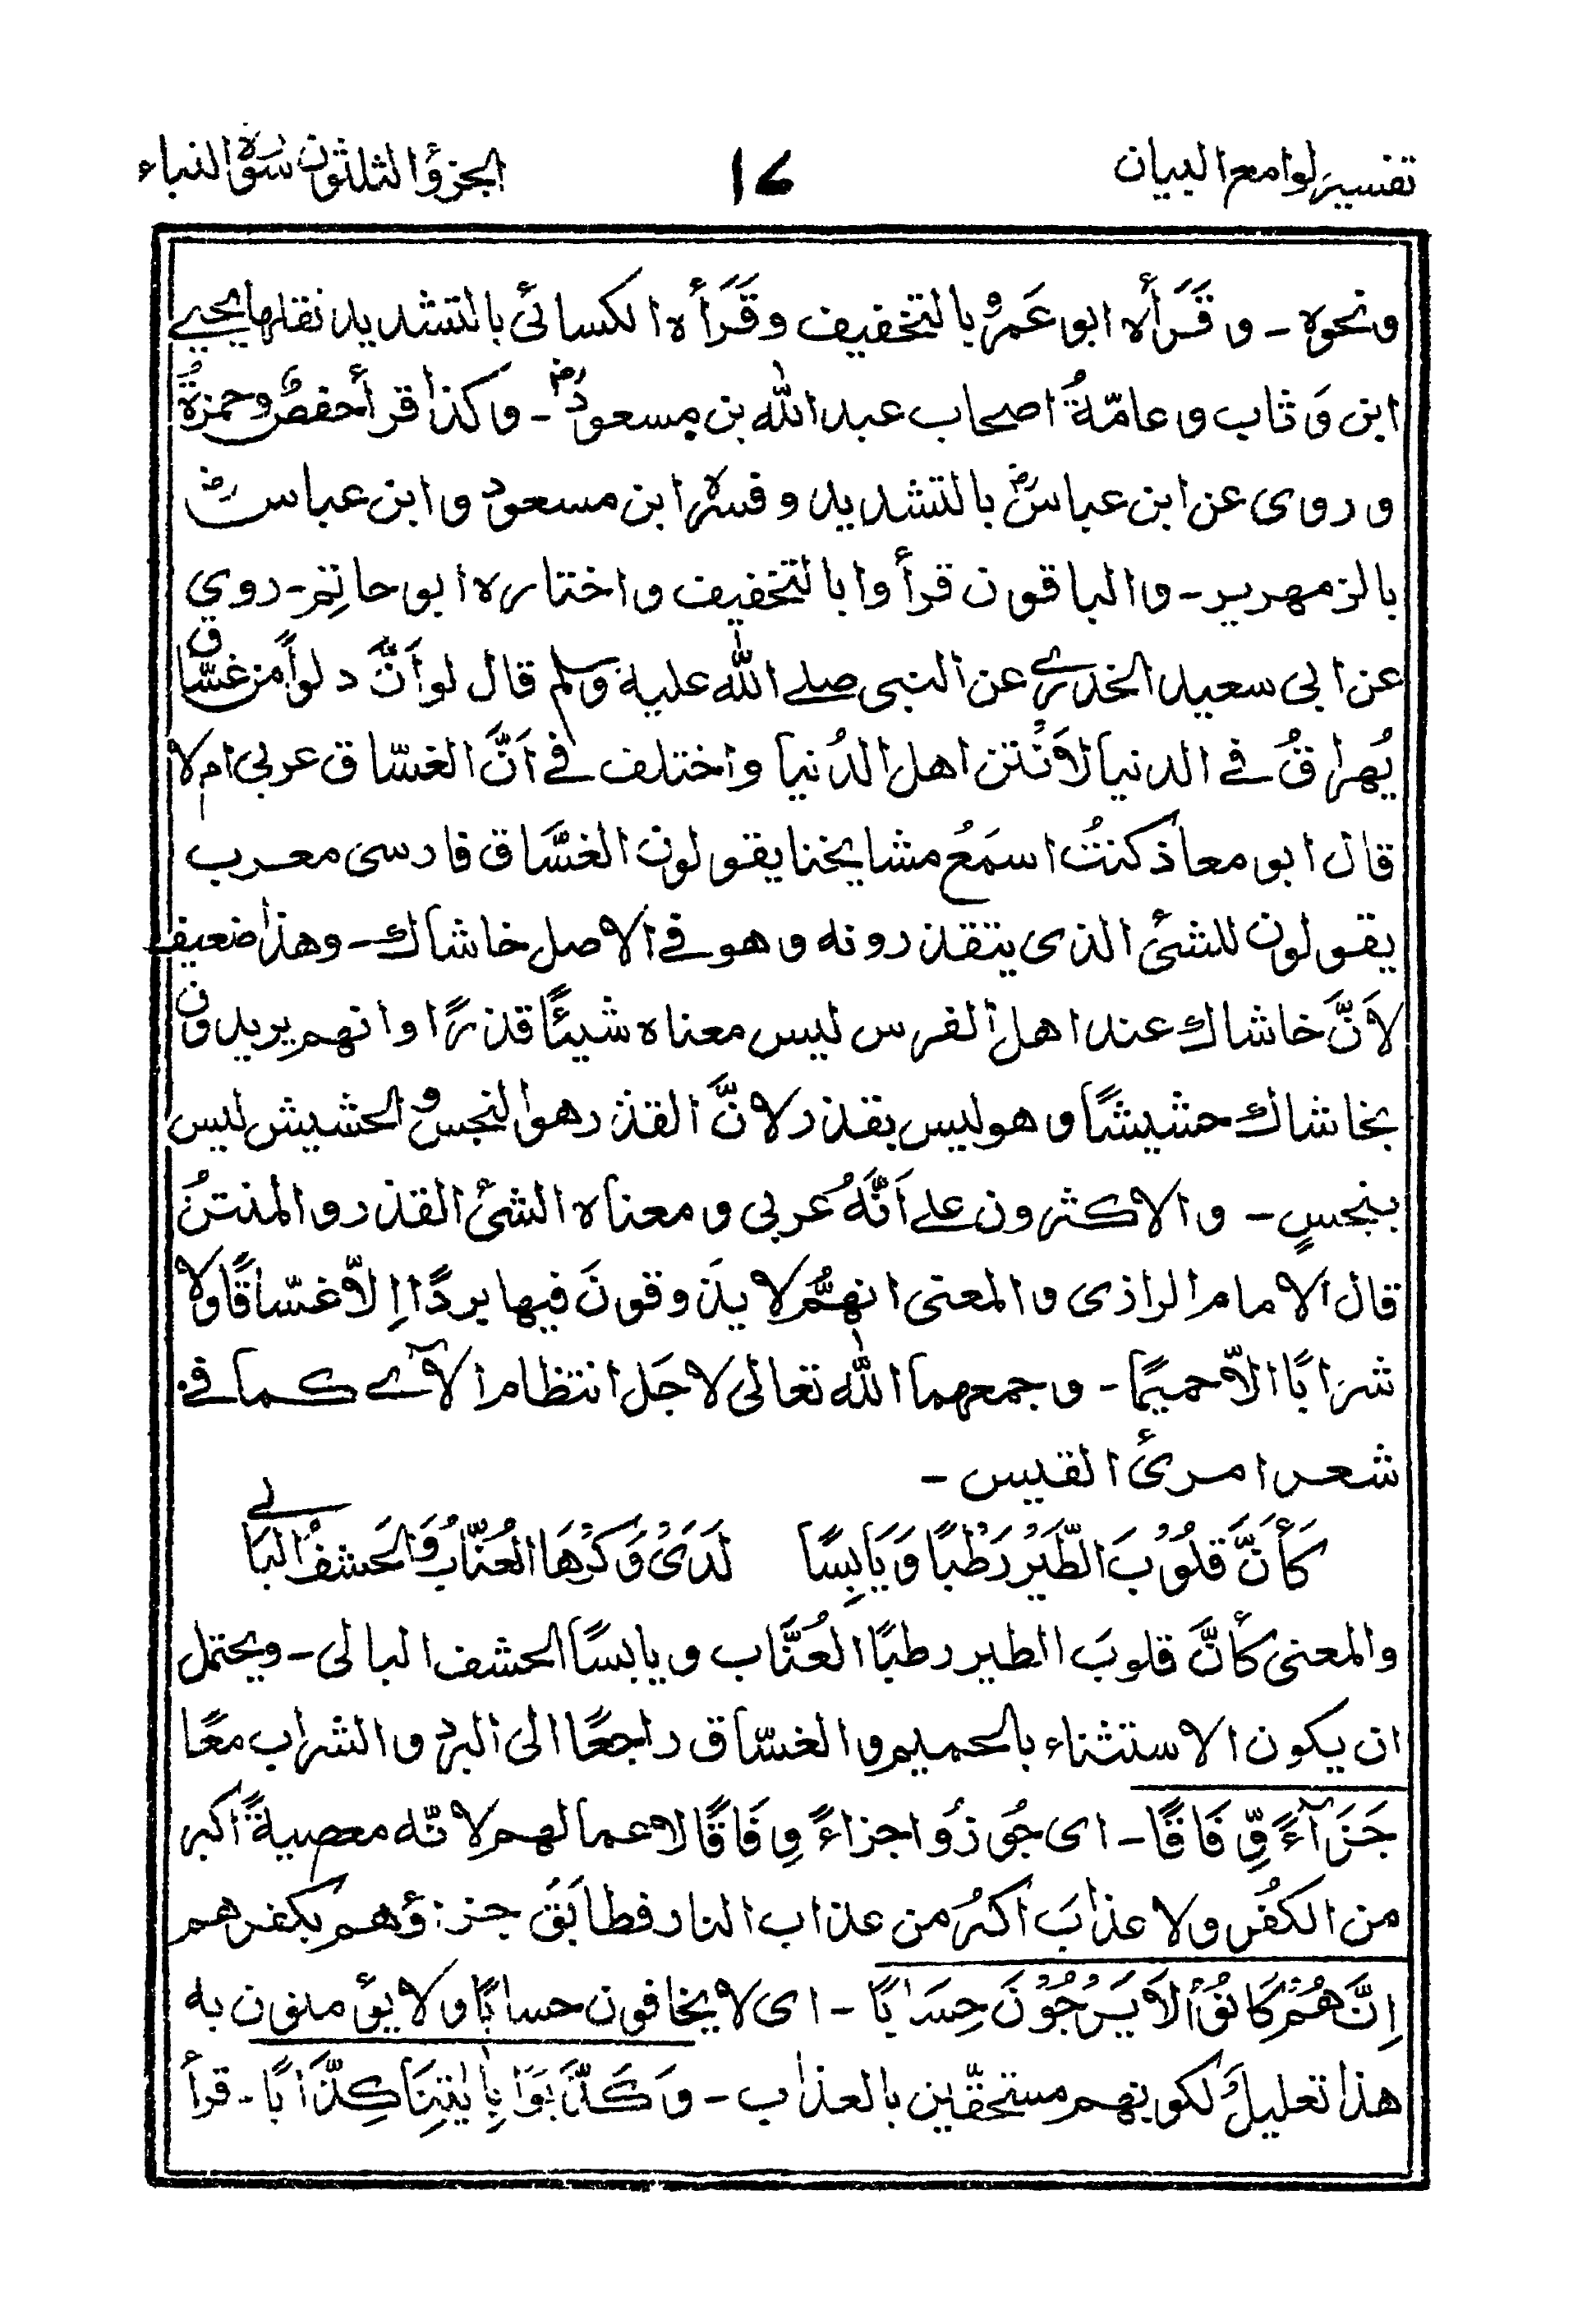 تفسير لوامع البيان ١٧ الجزؤ الثلثون سورة النباء
ونحوه - و قَرَأَه ابو عَمرٍو بالتخفيف وقَرَأَه الكسائىُ بالتشديد نقلها يحيے
ابن وَثاب و عامّةُ اصحاب عبد اللّٰه بن مسعودؓ - و كذا قرأ حفصٌ وحمزةُ
و روى عن ابن عباسؓ بالتشديد و فسره ابن مسعود و ابن عباسؓ
بالزمهرير - والباقون قرأوا بالتخفيف واختاره ابو حاتِمٍ - روى
عن ابى سعيد الخدرىؓ عن النبى صلے اللّٰه عليه وسلم قال لو اَنَّ دلوًا من غسّاق
يُهراقُ فے الدنيا لَاَنْتن اهل الدُنيا واختلف فے اَنَّ الغسّاق عربى ام لا
قال ابو معاذ كنتُ اسمَعُ مشايخنا يقولون الغسَّاق فارسى معرب
يقولون للشئ الذى يتقذرونه وهو فے الاصل خاشاك - وهذا ضعيف
لَاَنَّ خاشاك عند اهل الفرس ليس معناه شيئًا قذرًا وانهم يريدون
بخاشاك حشيشًا وهو ليس بقذر لانَّ القذر هو النجس والحشيش ليس
بنجسٍ - والاكثرون علے اَنَّهُ عربى و معناه الشئ القذر والمنتنُ
قال الامام الرازى والمعنى انهُم لا يذوقونَ فيها بردًا اِلّا غسّاقًا ولا
شرَابًا الّا حميمًا - وجمعهما اللّٰه تعالى لاجَل انتظام الآے كما فے
شعر امرئ القيس -
كَأَنَّ قلُوْبَ الطَّيْرِ رَطْبًا وَيَابِسًا لَدَىْ وَكْرِهَا العُنَّابُ وَالحَشفُ البَالے
والمعنى كأنَّ قلوبَ الطير رطبًا العُنَّاب ويابسًا الحشف البالى - ويحتمل
ان يكون الاستثناء بالحميم والغسّاق راجعًا الى البرد والشراب معًا
جَزَآءً وِّفَاقًا - اى جُوزُوا جزاءً وِفَاقًا لاعمالهم لانّه معصيةً اكبر
من الكفُر ولا عذابَ اكبرُ من عذاب النار فطابَقَ جزاؤهم بكفرهم
اِنَّهُمْ كَانُوْا لَا يَرْجُوْنَ حِسَابًا - اى لا يخافون حسابًا ولا يؤمنون به
هذا تعليلٌ لكونهم مستحقّين بالعذاب - وَكَذَّبُوْا بِاٰيٰتِنَا كِذَّابًا - قرأ